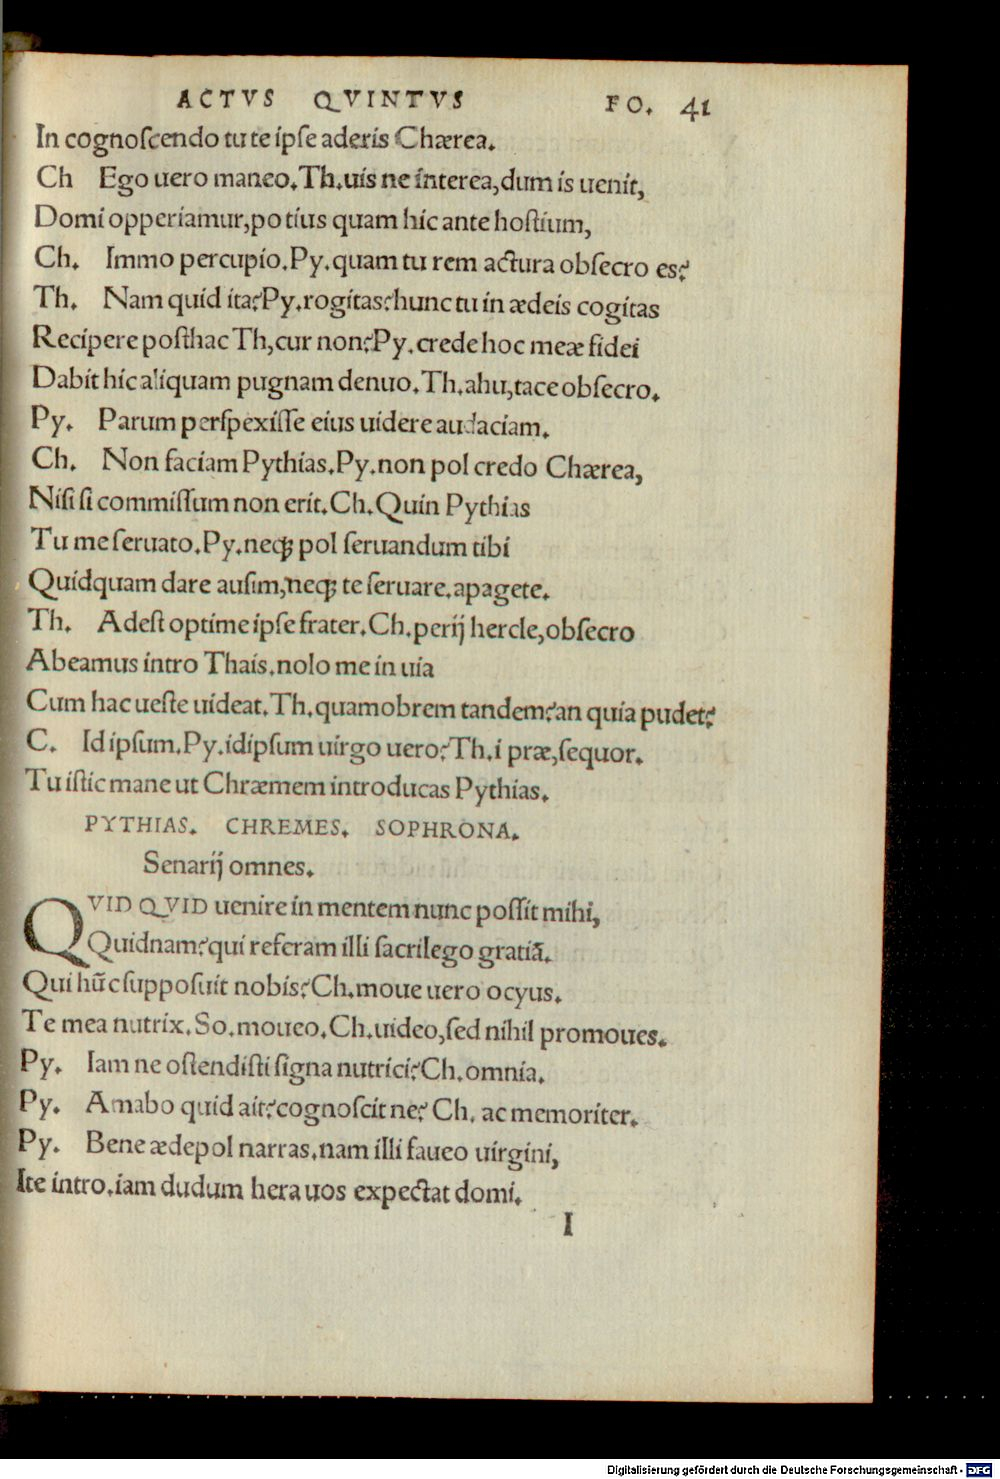 ACTVS QVINTVS FO. 41
In cognoſcendo tu te ipſe aderis Chærea.
Ch Ego uero maneo.Th.uis ne interea,dum is uenit,
Domi opperiamur,potius quam hic ante hoſtium,
Ch. Immo percupio.Py.quam tu rem actura obſecro es?
Th. Nam quid ita?Py.rogitas?hunc tu in ædeis cogitas
Recipere poſthac Th,cur non?Py.crede hoc meæ fidei
Dabit hic aliquam pugnam denuo.Th.ahu,tace obſecro.
Py. Parum perſpexiſſe eius uidere audaciam.
Ch. Non faciam Pythias.Py.non pol credo Chærea,
Niſi ſi commiſſum non erit.Ch.Quin Pythias
Tu me ſeruato.Py.neqꝫ pol ſeruandum tibi
Quidquam dare auſim,neqꝫ te ſeruare.apagete.
Th. Adeſt optime ipſe frater.Ch.perij hercle,obſecro
Abeamus intro Thais.nolo me in uia
Cum hac ueſte uideat.Th.quamobrem tandem?an quia pudet?
C. Id ipſum.Py.idipſum uirgo uero?Th.i præ,ſequor.
Tu iſtic mane ut Chræmem introducas Pythias.
PYTHIAS. CHREMES. SOPHRONA.
Senarij omnes.
QVID QVID uenire in mentem nunc poſſit mihi,
Quidnam?qui referam illi ſacrilego gratiā.
Qui hūc ſuppoſuit nobis?Ch.moue uero ocyus.
Te mea nutrix.So.moueo.Ch.uideo,ſed nihil promoues.
Py. Iam ne oſtendiſti ſigna nutrici?Ch.omnia.
Py. Amabo quid ait?cognoſcit ne? Ch. ac memoriter.
Py. Bene ædepol narras.nam illi faueo uirgini,
Ite intro.iam dudum hera uos expectat domi.
I
Digitalisierung gefördert durch die Deutsche Forschungsgemeinschaft - DFG